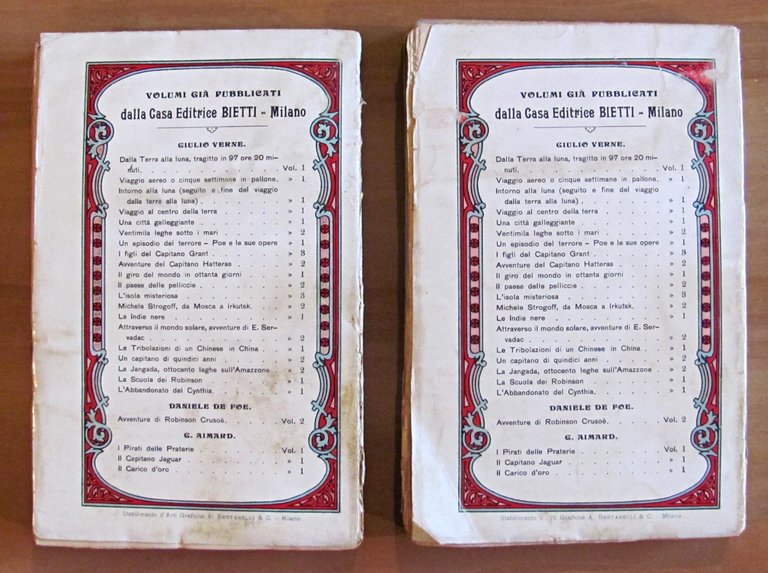 VOLUMI GIÀ PUBBLICATI
dalla Casa Editrice BIETTI - Milano
GIULIO VERNE.
Dalla Terra alla luna, tragitto in 97 ore 20 mi-
nuti. . . . . . . . . Vol. 1
Viaggio aereo o cinque settimane in pallone. » 1
Intorno alla luna (seguito e fine del viaggio
dalla terra alla luna) . . . . . . » 1
Viaggio al centro della terra . . . . » 1
Una città galleggiante . . . . . . » 1
Ventimila leghe sotto i mari . . . . » 2
Un episodio del terrore - Poe e le sue opere » 1
I figli del Capitano Grant . . . . . » 3
Avventure del Capitano Hatteras . . . » 2
Il giro del mondo in ottanta giorni . . » 1
Il paese delle pelliccie . . . . . . » 2
L'isola misteriosa . . . . . . . » 3
Michele Strogoff, da Mosca a Irkutsk. . » 2
Le Indie nere . . . . . . . . » 1
Attraverso il mondo solare, avventure di E. Ser-
vadac . . . . . . . . . » 2
Le Tribolazioni di un Chinese in China . » 1
Un capitano di quindici anni . . . . » 2
La Jangada, ottocento leghe sull'Amazzone » 2
La Scuola dei Robinson . . . . . » 1
L'Abbandonato del Cynthia. . . . . » 1
DANIELE DE FOE.
Avventure di Robinson Crusoè. . . . Vol. 2
G. AIMARD.
I Pirati delle Praterie . . . . . Vol. 1
Il Capitano Jaguar . . . . . . » 1
Il Carico d'oro . . . . . . . » 1
Stabilimento d'Arti Grafiche A. BERTARELLI & C. - Milano
VOLUMI GIÀ PUBBLICATI
dalla Casa Editrice BIETTI - Milano
GIULIO VERNE.
Dalla Terra alla luna, tragitto in 97 ore 20 mi-
nuti. . . . . . . . . Vol. 1
Viaggio aereo o cinque settimane in pallone. » 1
Intorno alla luna (seguito e fine del viaggio
dalla terra alla luna) . . . . . . » 1
Viaggio al centro della terra . . . . » 1
Una città galleggiante . . . . . . » 1
Ventimila leghe sotto i mari . . . . » 2
Un episodio del terrore - Poe e le sue opere » 1
I figli del Capitano Grant . . . . . » 3
Avventure del Capitano Hatteras . . . » 2
Il giro del mondo in ottanta giorni . . » 1
Il paese delle pelliccie . . . . . . » 2
L'isola misteriosa . . . . . . . » 3
Michele Strogoff, da Mosca a Irkutsk. . » 2
Le Indie nere . . . . . . . . » 1
Attraverso il mondo solare, avventure di E. Ser-
vadac . . . . . . . . . » 2
Le Tribolazioni di un Chinese in China . » 1
Un capitano di quindici anni . . . . » 2
La Jangada, ottocento leghe sull'Amazzone » 2
La Scuola dei Robinson . . . . . » 1
L'Abbandonato del Cynthia. . . . . » 1
DANIELE DE FOE.
Avventure di Robinson Crusoè. . . . Vol. 2
G. AIMARD.
I Pirati delle Praterie . . . . . Vol. 1
Il Capitano Jaguar . . . . . . » 1
Il Carico d'oro . . . . . . . » 1
Stabilimento Grafiche A. BERTARELLI & C. - Milano